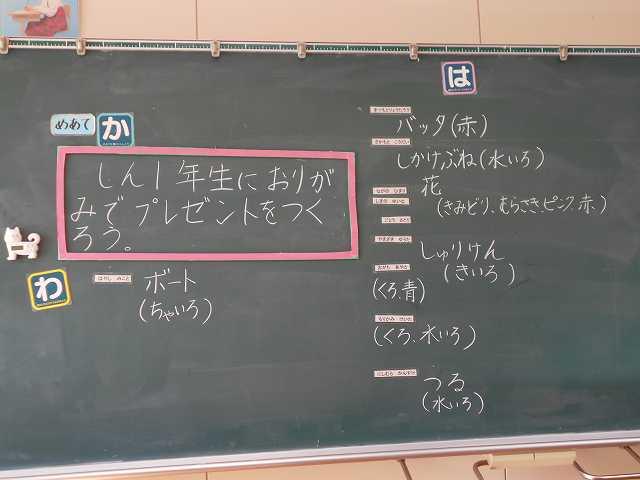 めあて
か
しん1年生におりが
みでプレゼントをつく
ろう。
わ
はやし みこと
ボート
(ちゃいろ)
は
バッタ(赤)
しかけぶね(水いろ)
花
(きみどり、むらさき、ピンク、赤)
しゅりけん
(きいろ)
(くろ、青)
(くろ、水いろ)
つる
(水いろ)